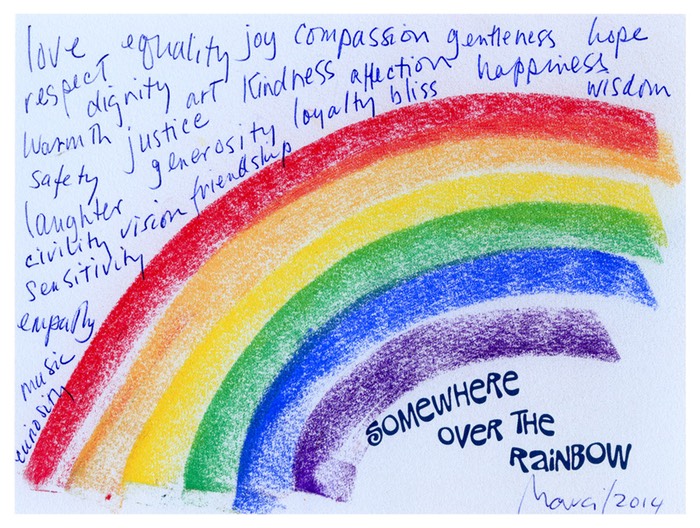 love equality joy compassion gentleness hope
respect dignity art kindness affection happiness
warmth justice loyalty bliss wisdom
safety generosity
laughter friendship
civility vision
sensitivity
empathy
music
curiosity
SOMEWHERE
OVER THE
RAiNBOW
/2014